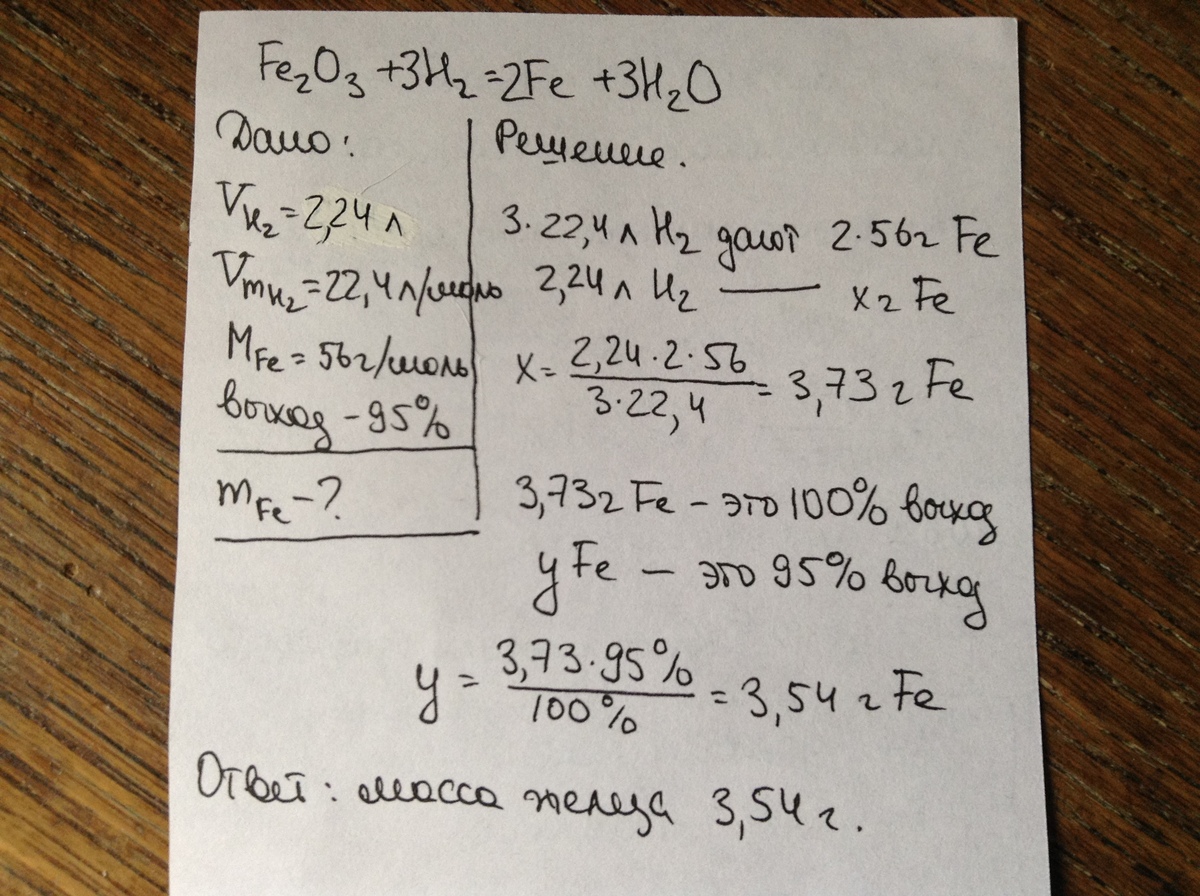 Fe₂O₃ +3H₂ =2Fe +3H₂O
Дано:
V H₂ = 2,24 л
Vm H₂ = 22,4 л/моль
M Fe = 56 г/моль
выход - 95%
m Fe - ?
Решение.
3·22,4 л H₂ дают 2·56 г Fe
2,24 л H₂ — x г Fe
x = 2,24·2·56 / 3·22,4 = 3,73 г Fe
3,73 г Fe - это 100% выход
y Fe - это 95% выход
y = 3,73·95% / 100% = 3,54 г Fe
Ответ: масса железа 3,54 г.